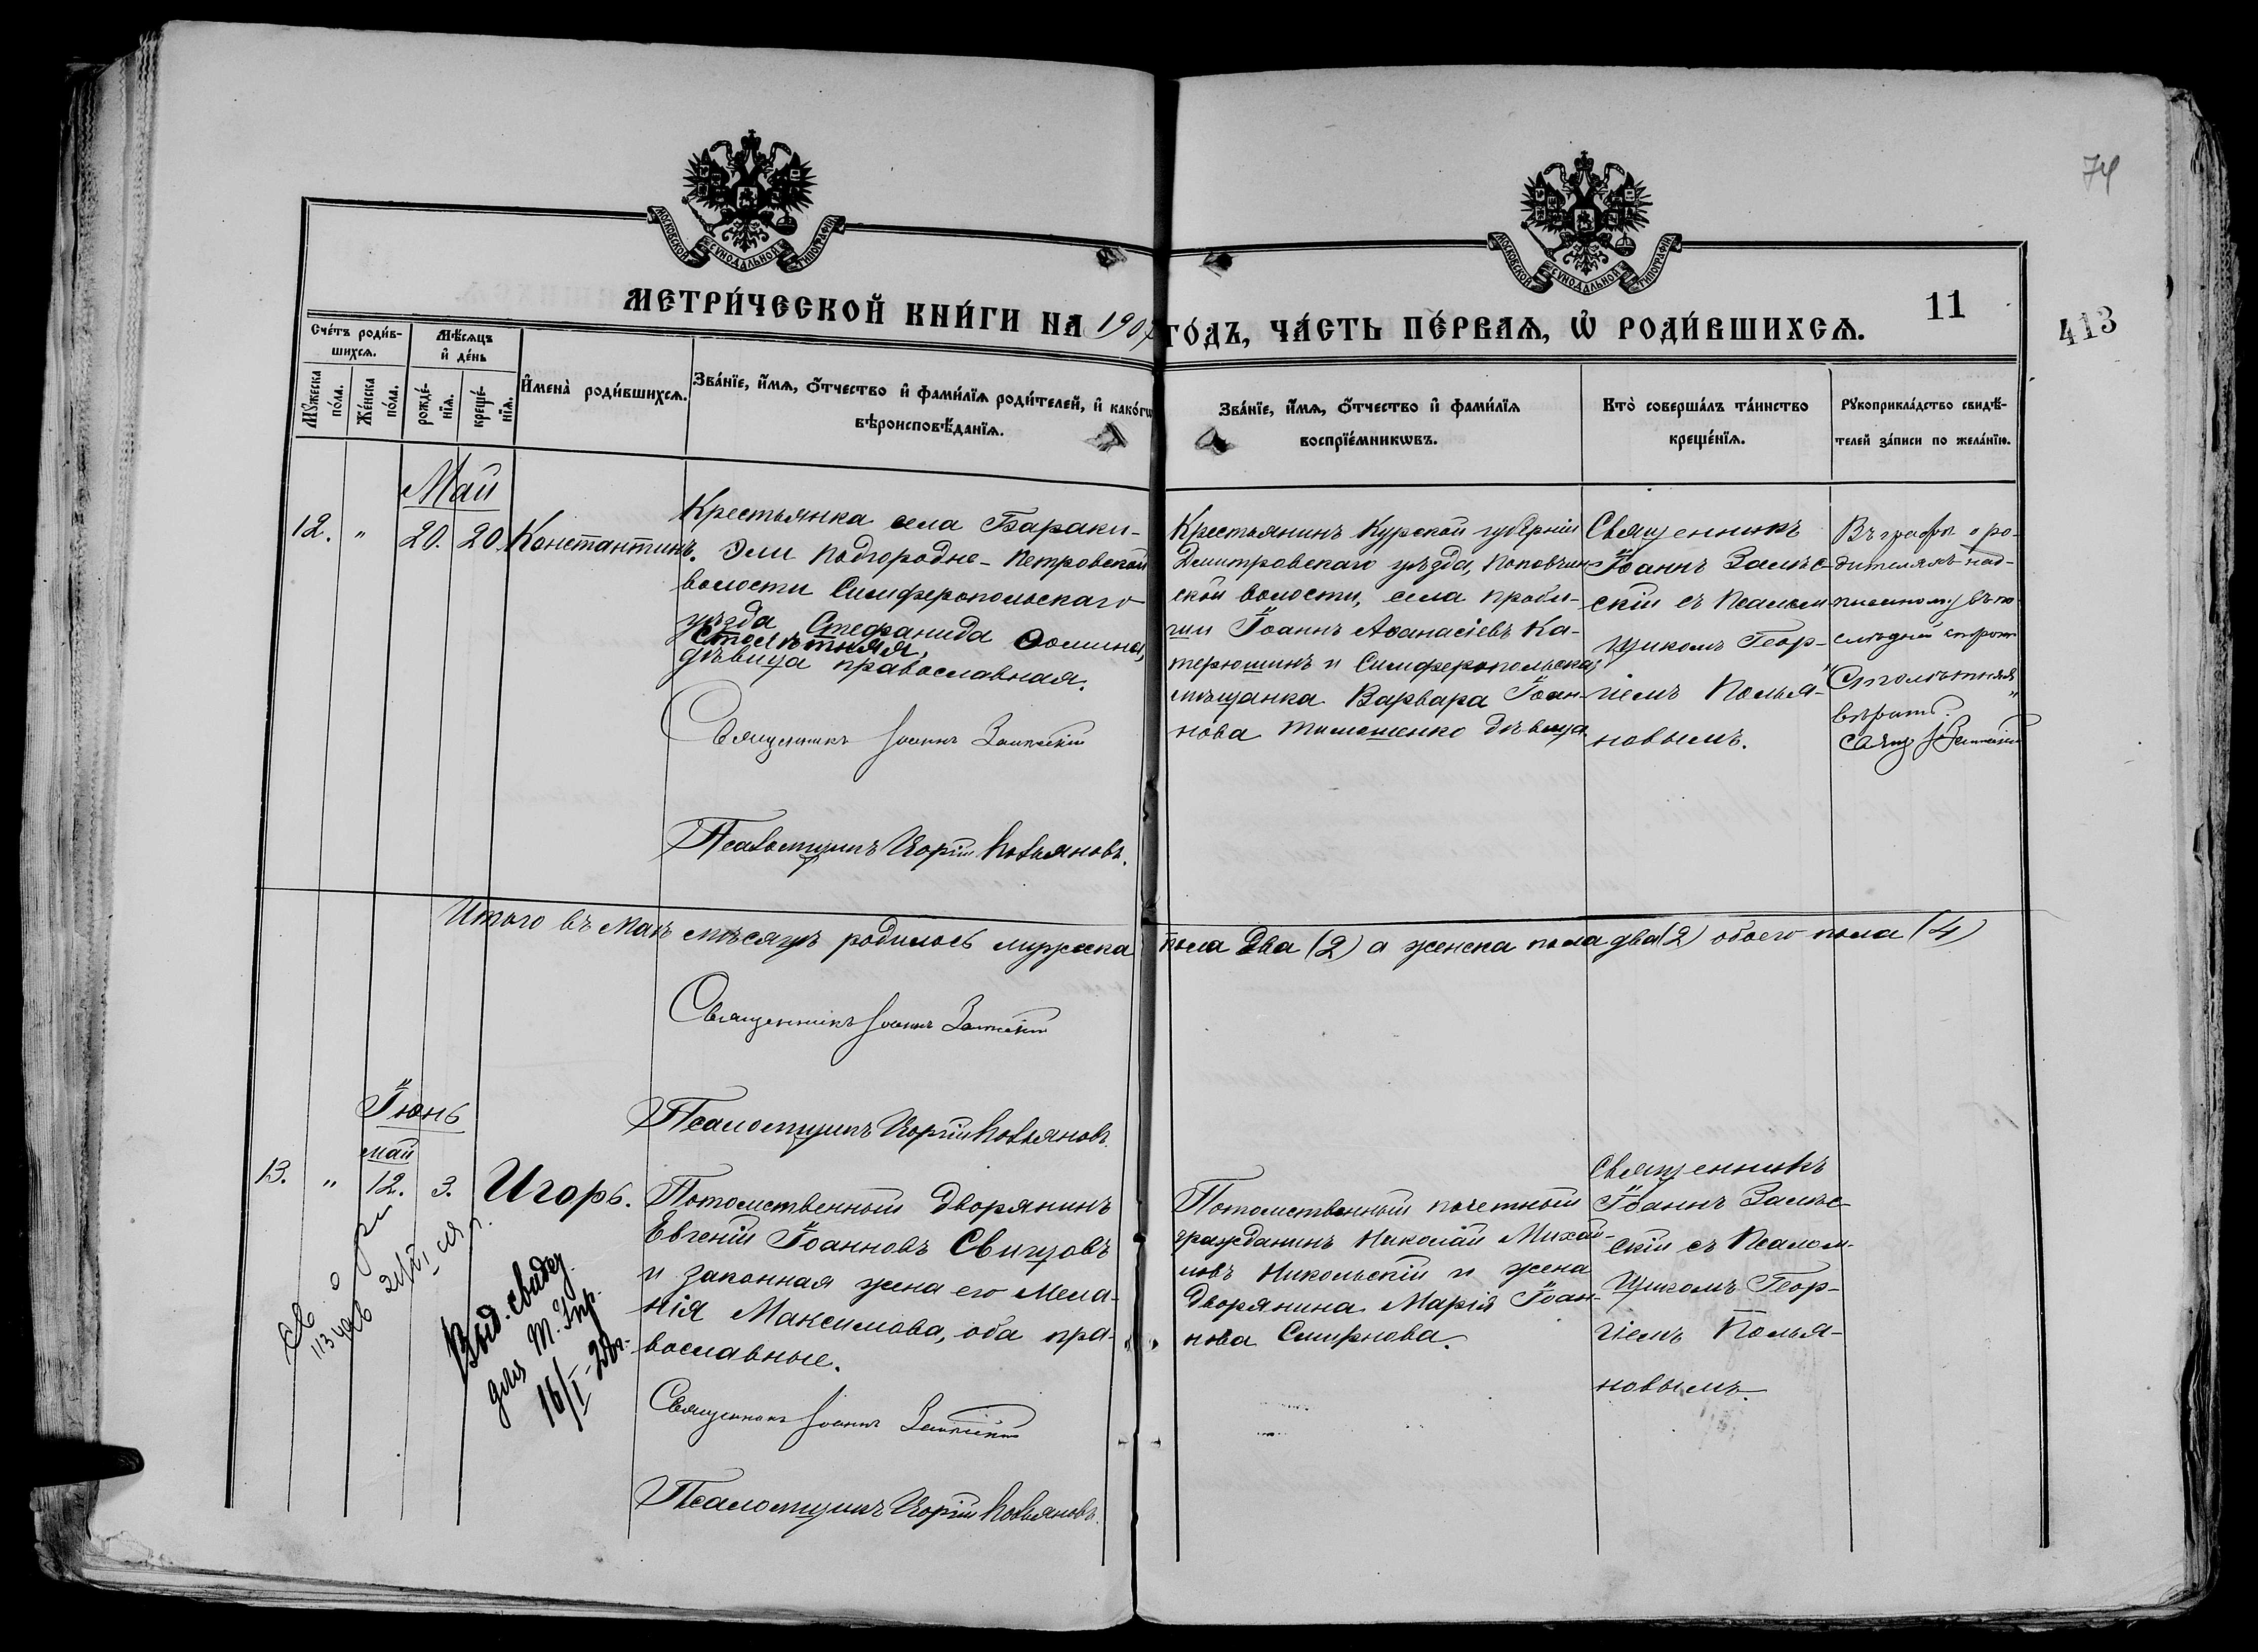 74
МОСКОВСКОЙ СѴНОДАЛЬНОЙ ТИПОГРАФІИ
МОСКОВСКОЙ СѴНОДАЛЬНОЙ ТИПОГРАФІИ
МЕТРИ́ЧЕСКОЙ КНИ́ГИ НА 1907 ГО́ДЪ, ЧА́СТЬ ПЕ́РВАѦ, Ѡ҆ РОДИ́ВШИХСѦ.
11
413
Сче́тъ роди́в-
шихсѧ.
Мѣ́сѧцъ
и҆ де́нь
Мꙋ́жеска
по́ла.
Же́нска
по́ла.
рожде́-
нїѧ.
креще́-
нїѧ.
И҆мена̀ роди́вшихсѧ.
Зва́нїе, и҆́мѧ, ѻ҆́тчество и҆ фами́лїѧ роди́телей, и҆ како́гѡ
вѣроисповѣ́данїѧ.
Зва́нїе, и҆́мѧ, ѻ҆́тчество и҆ фами́лїѧ
воспрїе́мникѡвъ.
Кто̀ соверша́лъ та́инство
креще́нїѧ.
Рꙋкоприкла́дство свидѣ́-
телей за́писи по жела́нїю.
Май
12. " 20. 20. Константинъ.
Крестьянка села Бараки-
Эли Подгородне-Петровской
волости Симферопольскаго
уѣзда Стефанида Ѳомина
Столѣтняя,
дѣвица православная.
Священникъ Іоаннъ Замѣскій
Псаломщикъ Георгій Польяновъ.
Крестьянинъ Курской губерніи
Дмитровскаго уѣзда, Поповкин-
ской волости, села Проби-
гіи Іоаннъ Аѳанасіевъ Ка-
терюшинъ и Симферопольская
мѣщанка Варвара Іоан-
нова Тимошенко дѣвица
Священникъ
Іоаннъ Замѣс-
скій съ Псалом
щикомъ Геор-
гіемъ Полья-
новымъ.
Въ графѣ о ро-
дителяхъ над-
писанному въ по
слѣдней строкѣ
"Столѣтняя"
вѣрить.
Свящ. І. Замѣскій
Итого въ Маѣ мѣсяцѣ родилось мужска пола два (2) а женска пола два (2) обоего пола (4)
Священникъ Іоаннъ Замѣскій
Псаломщикъ Георгій Польяновъ.
Іюнь
май
13. " 12. 3. Игорь.
Выд. свидѣ.
для М. Упр.
16/I
Потомственный дворянинъ
Евгеній Іоанновъ Свищовъ
и законная жена его Мела-
нія Максимова, оба пра-
вославные.
Священникъ Іоаннъ Замѣскій
Псаломщикъ Георгій Польяновъ.
Потомственный почетный
гражданинъ Николай Михай-
ловъ Никольскій и жена
дворянина Марія Іоан-
нова Смирнова.
Священникъ
Іоаннъ Замѣс-
скій съ Псалом-
щикомъ Геор-
гіемъ Полья-
новымъ.